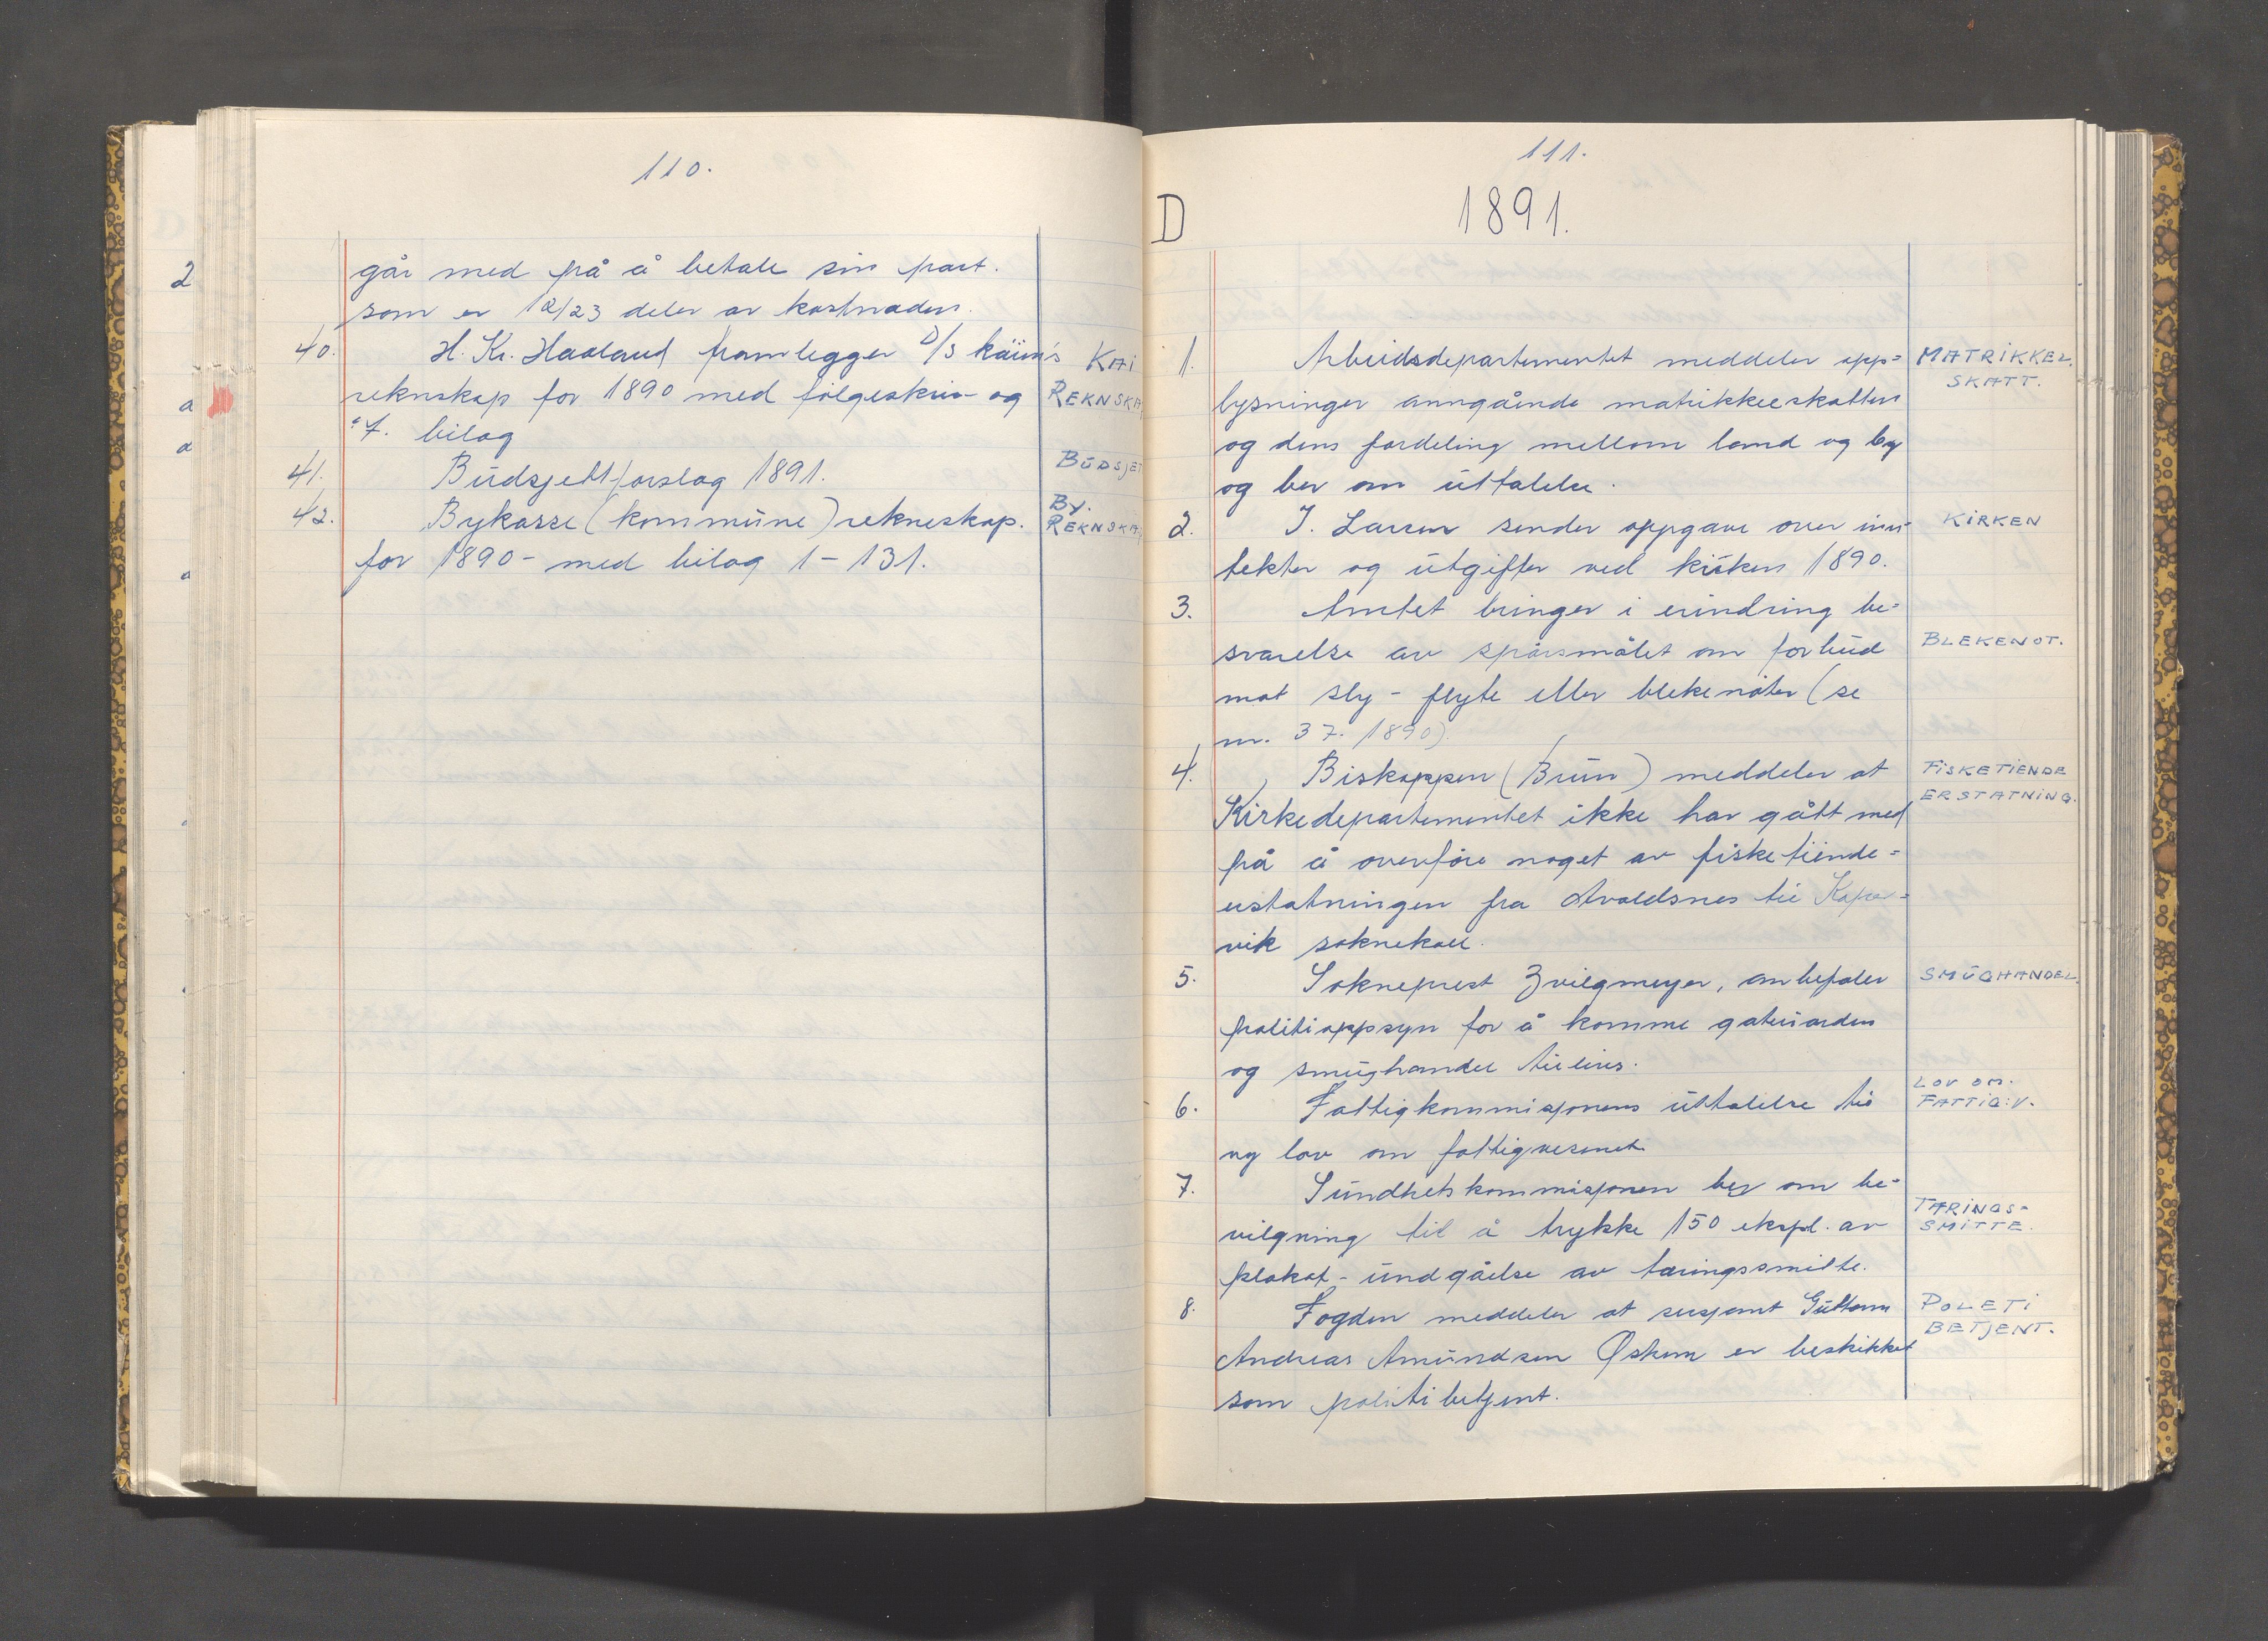 110.
går med på å betale sin part.
som er 12/23 deler av kostnaden.
40. H. Kr. Haaland framlegger D/S kaiens KAI
reknskap for 1890 med følgeskriv og REKNSKA
7. bilag
41. Budsjettforslag 1891. BUDSJET
42. Bykasse (kommune) rekneskap. BY. REKNSKA
for 1890 - med bilag 1 - 131.
111.
D 1891.
1. Arbeidsdepartementet meddeler opp= MATRIKKEL.
lysninger anngående matrikkelskatten SKATT.
og dens fordeling mellom land og by
og ber om uttalelse.
2. J. Larsen sender oppgave over inn- KIRKEN
tekter og utgifter ved kirken 1890.
3. Amtet bringer i erindring be=
svarelse av spørsmålet om forbud BLEKENOT.
mot sly - flyte eller blekenøter (se
nr. 37. 1890).
4. Biskoppen (Brun) meddeler at FISKETIENDE
Kirkedepartementet ikke har gått med ERSTATNING.
på å overføre noget av fisketiende=
erstatningen fra Avaldsnes til Kopa=
vik soknekall.
5. Sokneprest Zwilgmeyer, anbefaler SMUGHANDEL.
politioppsyn for å komme gateuorden
og smughandel tillivs.
6. Fattigkommisjonens uttalelse til LOV OM. FATTIG:V.
ny lov om fattigvesenet.
7. Sundhetskommisjonen ber om be-
vilgning til å trykke 150 ekspl. av TÆRINGS- SMITTE.
plakat - undgåelse av tæringssmitte.
8. Fogden meddeler at sersjant Guttorm POLETI
Andreas Amundsen Østrem er beskikket BETJENT.
som politibetjent.